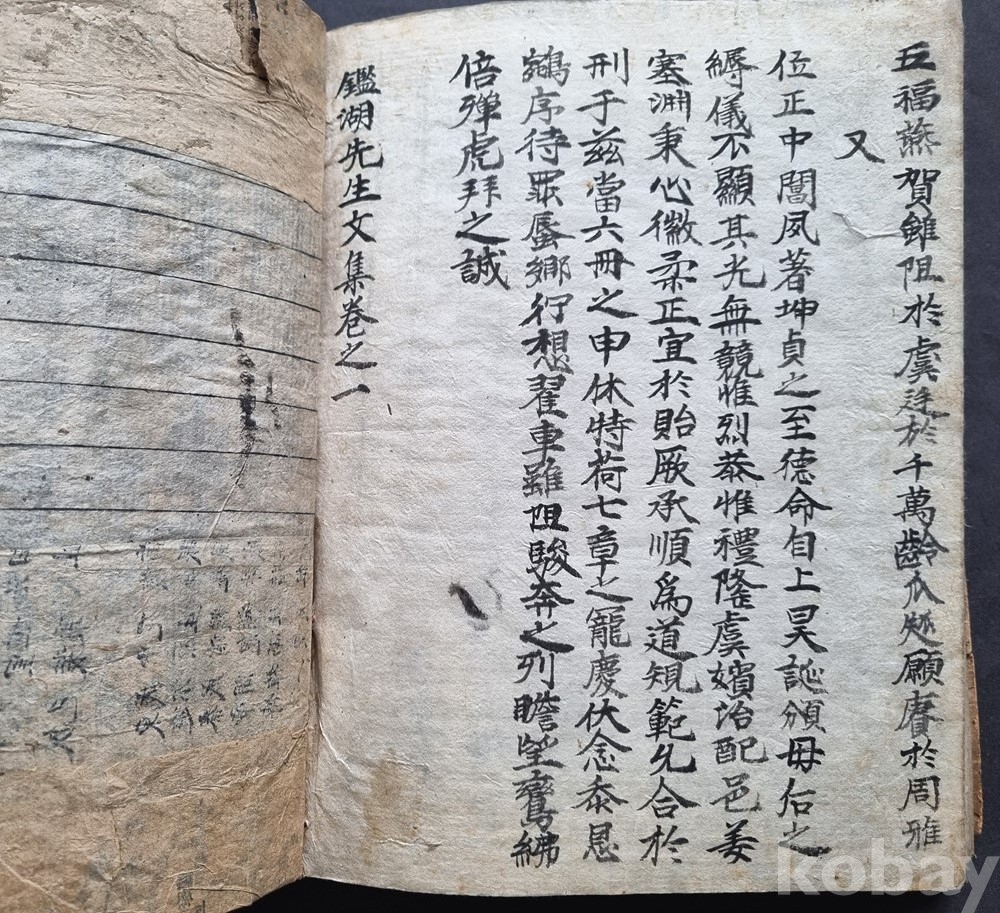 五福燕賀雖阻於虞廷於千萬齡瓜瓞願賡於周雅
又
位正中闈夙著坤貞之至德命自上昊誕頒毋后之
縟儀不顯其光無競惟烈恭惟禮隆虞嬪治配邑姜
塞淵秉心徽柔正宜於貽厥承順為道規範允合於
刑于玆當六冊之申休特荷七章之寵慶伏念忝恩
鵷序待罪蜃鄉行想翟車雖阻駿奔之列瞻望鸞紼
倍殫虎拜之誠
鑑湖先生文集卷之一
kobay